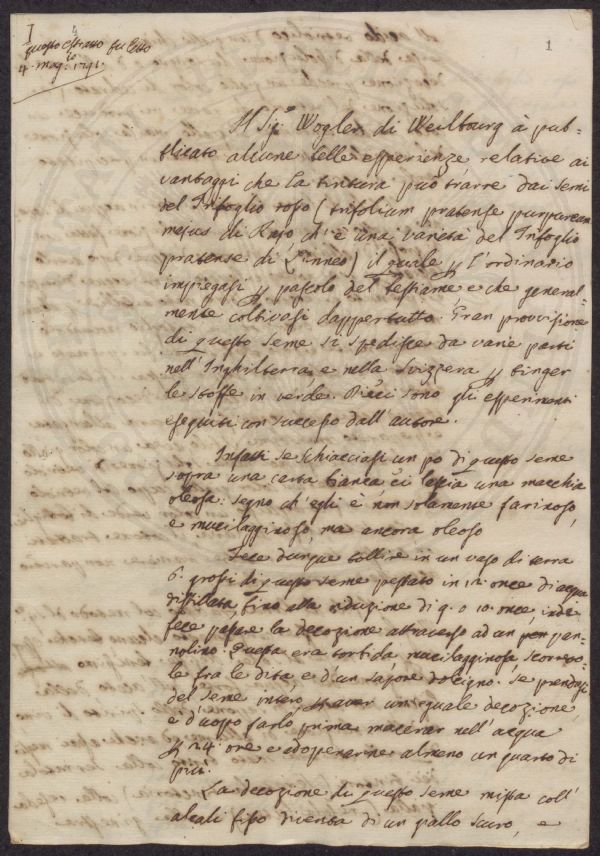 I
questo estratto fu letto
4. mag.io 1791.
1
Il Sig.e Wogler di Weilbourg à pub-
blicato alcune belle esperienze relative ai
vantaggi che la tintura può trarre dai semi
del Trifoglio rosso (trifolium pratense purpureum
majus di Rajo ch'è una varietà del Trifoglio
pratense di Linneo) il quale p l'ordinario
impiegasi p pascolo del bestiame e che general-
mente coltivasi dappertutto. Gran provvisione
di questo seme si spedisce da varie parti
nell'Inghilterra e nella Svizzera p tinger
le stoffe in verde. Dieci sono gli esperimenti
eseguiti con successo dall'autore.
Infatti se schiacciasi un po di questo seme
sopra una carta bianca ci lascia una macchia
oleosa: segno ch'egli è non solamente farinoso,
e mucilagginoso, ma ancora oleoso
Fece dunque bollire in un vaso di terra
6. grossi di questo seme pestato in 12. once di acqua
distillata, fino alla riduzione di 9. o 10. once, indi
fece passare la decozione attraverso ad un pan-
nolino. Questa era torbida mucilagginosa scorrevo-
le fra le dita e d'un sapore dolcigno. Se prendasi
del seme intero p aver un'eguale decozione,
è d'uopo farlo prima macerar nell'acqua
p 24. ore e adoperarne almeno un quarto di
più.
La decozione di questo seme mista coll'
alcali fisso diventa di un giallo scuro, e